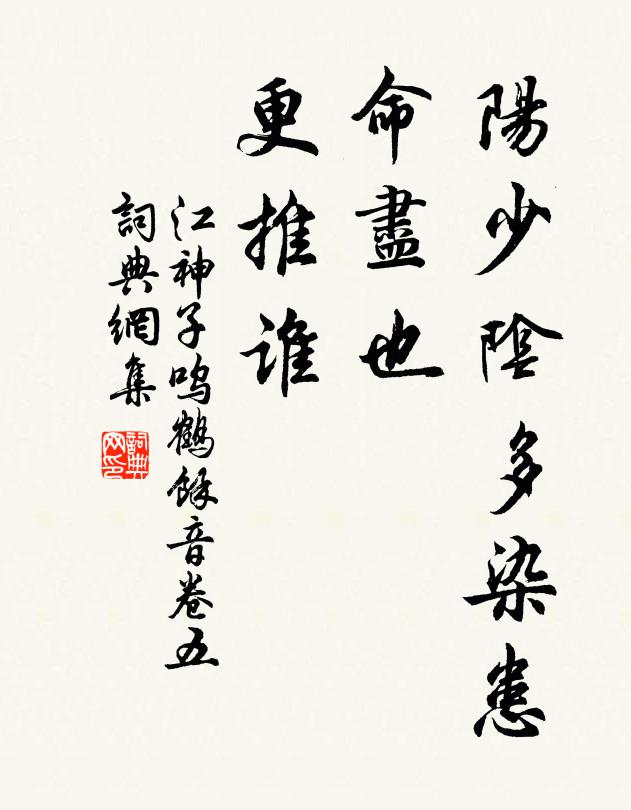 陽少陰多染患
命盡也
更推谁
江神子鸣鶴餘音卷五
詞典網集
詞典网印